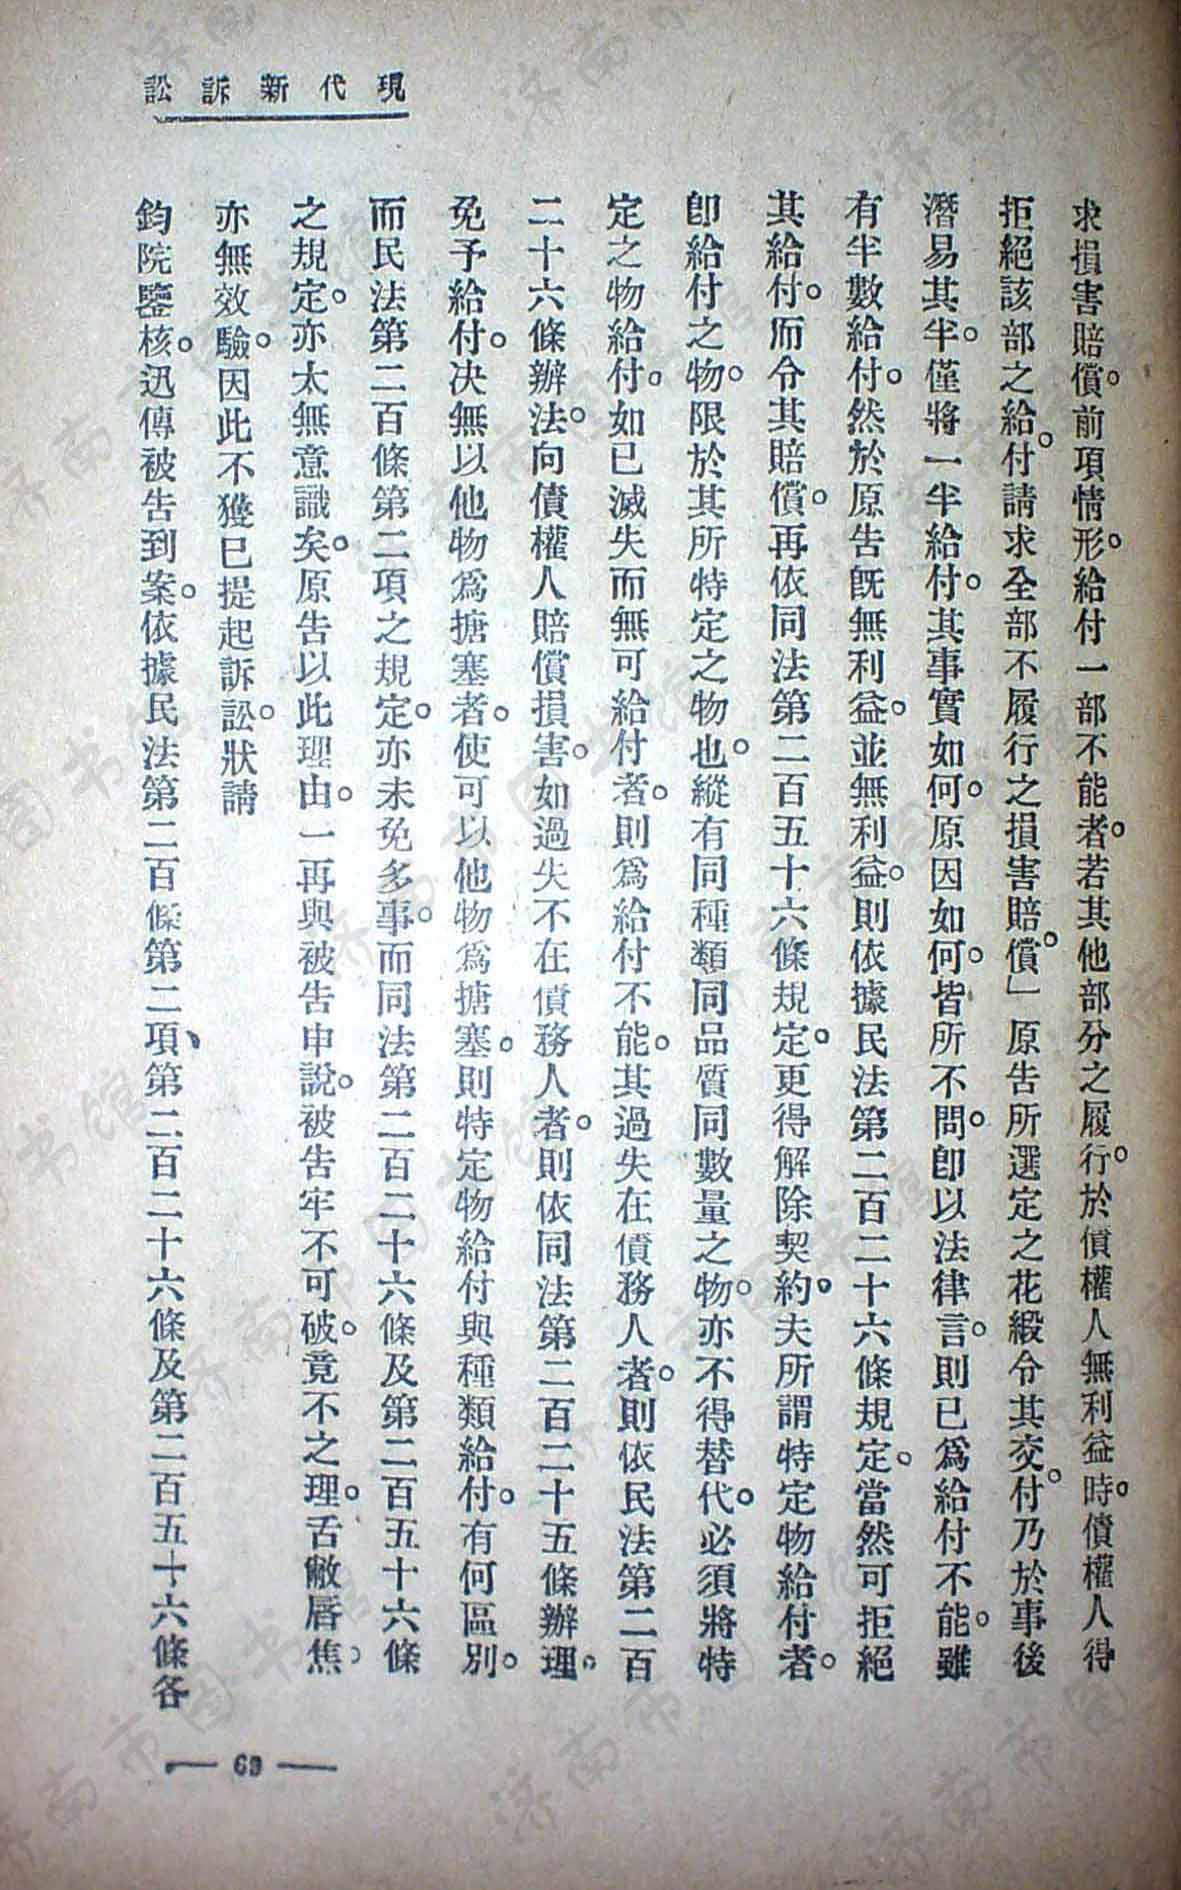 現代新訴訟
求損害賠償。前項情形。給付一部不能者。若其他部分之履行。於債權人無利益時。債權人得
拒絕該部之給付。請求全部不履行之損害賠償。」原告所選定之花緞令其交付。乃於事後
潛易其半。僅將一半給付。其事實如何。原因如何。皆所不問。卽以法律言。則已爲給付不能。雖
有半數給付。然於原告旣無利益。並無利益。則依據民法第二百二十六條規定。當然可拒絕
其給付。而令其賠償。再依同法第二百五十六條規定。更得解除契約。夫所謂特定物給付者。
卽給付之物。限於其所特定之物也。縱有同種類同品質同數量之物。亦不得替代。必須將特
定之物給付。如已滅失而無可給付者。則爲給付不能。其過失在債務人者。則依民法第二百
二十六條辦法。向債權人賠償損害。如過失不在債務人者。則依同法第二百二十五條辦理。
免予給付。决無以他物爲搪塞者。使可以他物爲搪塞。則特定物給付與種類給付。有何區別。
而民法第二百條第二項之規定。亦未免多事。而同法第二百二十六條及第二百五十六條
之規定。亦太無意識矣。原告以此理由。一再與被告申說。被告牢不可破。竟不之理。舌敝唇焦。
亦無效驗。因此不獲已提起訴訟。狀請
鈞院鑒核。迅傳被告到案。依據民法第二百條第二項、第二百二十六條及第二百五十六條各
— 69 —
济南市图书馆